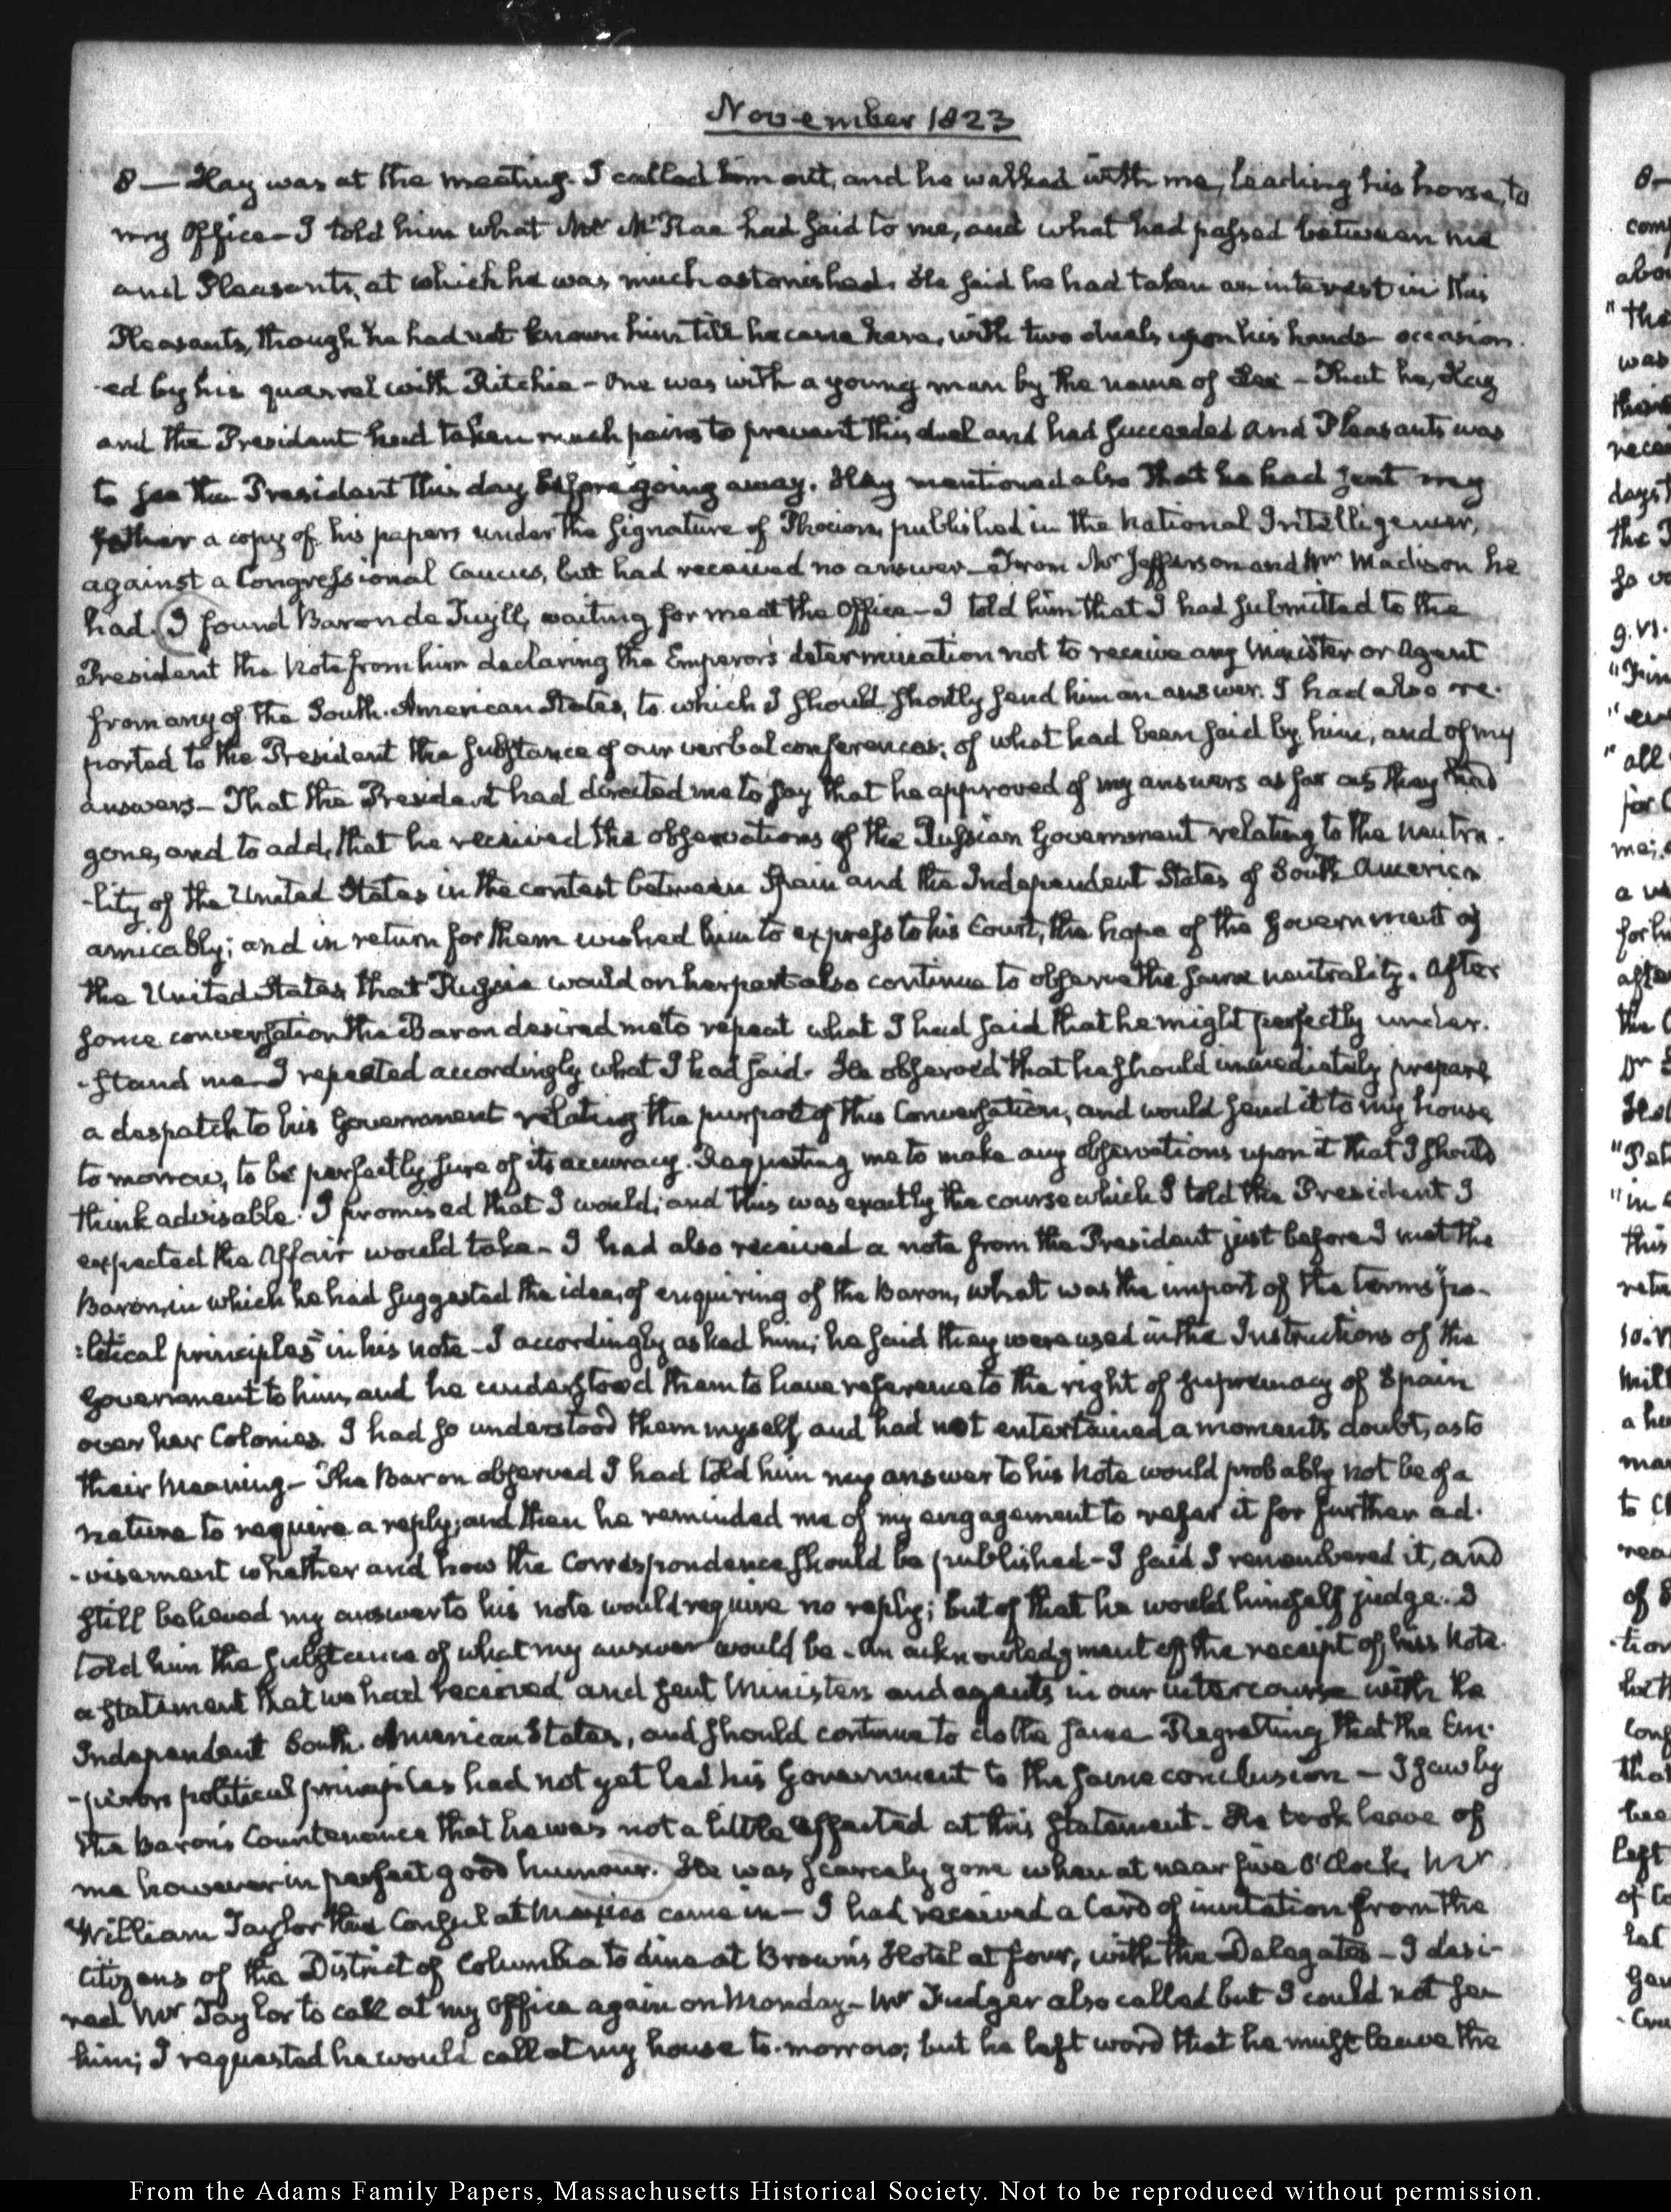 November 1823
8— Hay was at the meeting. I called him out, and he walked with me, leading his horse, to
my Office— I told him what Mr. McRae had said to me, and what had passed between me
and Pleasants, at which he was much astonished. He said he had taken an interest in this
Pleasants, though he had not known him till he came here, with two duels upon his hands— occasion-
-ed by his quarrel with Ritchie— One was with a young man by the name of Lee— That he, Hay
and the President had taken much pains to prevent this duel and had succeeded and Pleasants was
to see the President this day before going away. Hay mentioned also that he had sent my
father a copy of his papers under the signature of Phocion, published in the National Intelligencer,
against a Congressional Caucus, but had received no answer— From Mr. Jefferson and Mr. Madison he
had. I found Baron de Tuyll, waiting for me at the Office— I told him that I had submitted to the
President the Note from him declaring the Emperor's determination not to receive any Minister or Agent
from any of the South-American States, to which I should shortly send him an answer. I had also re-
ported to the President the substance of our verbal conferences; of what had been said by him, and of my
answers— That the President had directed me to say that he approved of my answers as far as they had
gone, and to add, that he received the observations of the Russian Government relating to the neutra-
-lity of the United States in the contest between Spain and the Independent States of South America
amicably; and in return for them wished him to express to his Court, the hope of the Government of
the United States that Russia would on her part also continue to observe the same neutrality. After
some conversation the Baron desired me to repeat what I had said that he might perfectly under-
-stand me— I repeated accordingly what I had said. He observed that he should immediately prepare
a despatch to his Government relating the purport of this Conversation, and would send it to my house
to morrow, to be perfectly sure of its accuracy. Requesting me to make any observations upon it that I should
think advisable. I promised that I would; and this was exactly the course which I told the President I
expected the Affair would take— I had also received a note from the President just before I met the
Baron, in which he had suggested the idea, of enquiring of the Baron, what was the import of the terms "po-
:litical principles" in his note— I accordingly asked him; he said they were used in the Instructions of the
Government to him, and he understood them to have reference to the right of supremacy of Spain
over her Colonies. I had so understood them myself, and had not entertained a moment's doubt, as to
their meaning— The Baron observed I had told him my answer to his Note would probably not be of a
nature to require a reply; and then he reminded me of my engagement to refer it for further ad-
-visement whether and how the Correspondence should be published— I said I remembered it, and
still believed my answer to his note would require no reply; but of that he would himself judge. I
told him the substance of what my answer would be— An acknowledgment of the receipt of his Note.
a statement that we had received and sent Ministers and agents in our intercourse with the
Independent South-American States, and should continue to do the same Regretting that the Em-
-perors political principles had not yet led his Government to the same conclusion— I saw by
the Baron's Countenance that he was not a little affected at this statement— He took leave of
me however in perfect good humour. He was scarcely gone when at near five O'Clock, Mr.
William Taylor the Consul at Mexico came in— I had received a Card of invitation from the
Citizens of the District of Columbia to dine at Brown's Hotel at four, with the Delegates— I desi-
red Mr. Taylor to call at my Office again on Monday— Mr. Fudger also called but I could not see
him; I requested he would call at my house to-morrow; but he left word that he must leave the
From the Adams Family Papers, Massachusetts Historical Society. Not to be reproduced without permission.